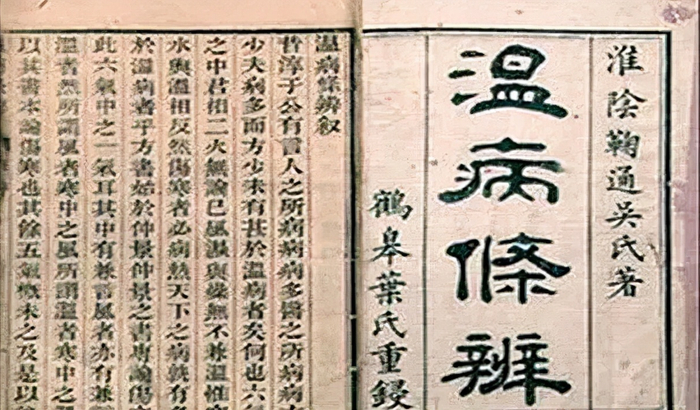 淮陰鞠通吳氏著
温病條辨
鶴皋葉氏重鋟
温病條辨叙
昔淳于公有言人之所病病病多醫之所病病
少夫病多而方少未有甚於温病者矣何也六
之中君相二火無論已風濕與燥無不兼温惟
水與温相反然傷寒者必病熱天下之病孰有
於温病者乎方書始於仲景仲景之書專論傷
此六氣中之一氣耳其中有兼言風者亦有兼
温者然所謂風者寒中之風所謂温者寒中之
以其書本論傷寒也其餘五氣概未之及是以